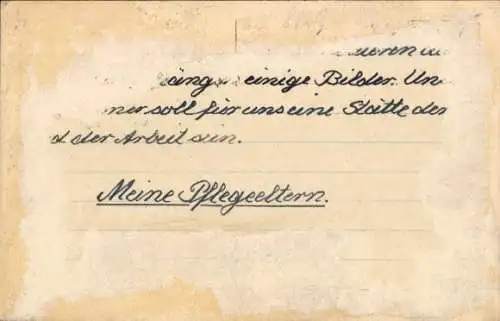 ueren
äng einige Bilder. Un
ner soll für uns eine Stätte der
d der Arbeit sein.
Meine Pflegeeltern.